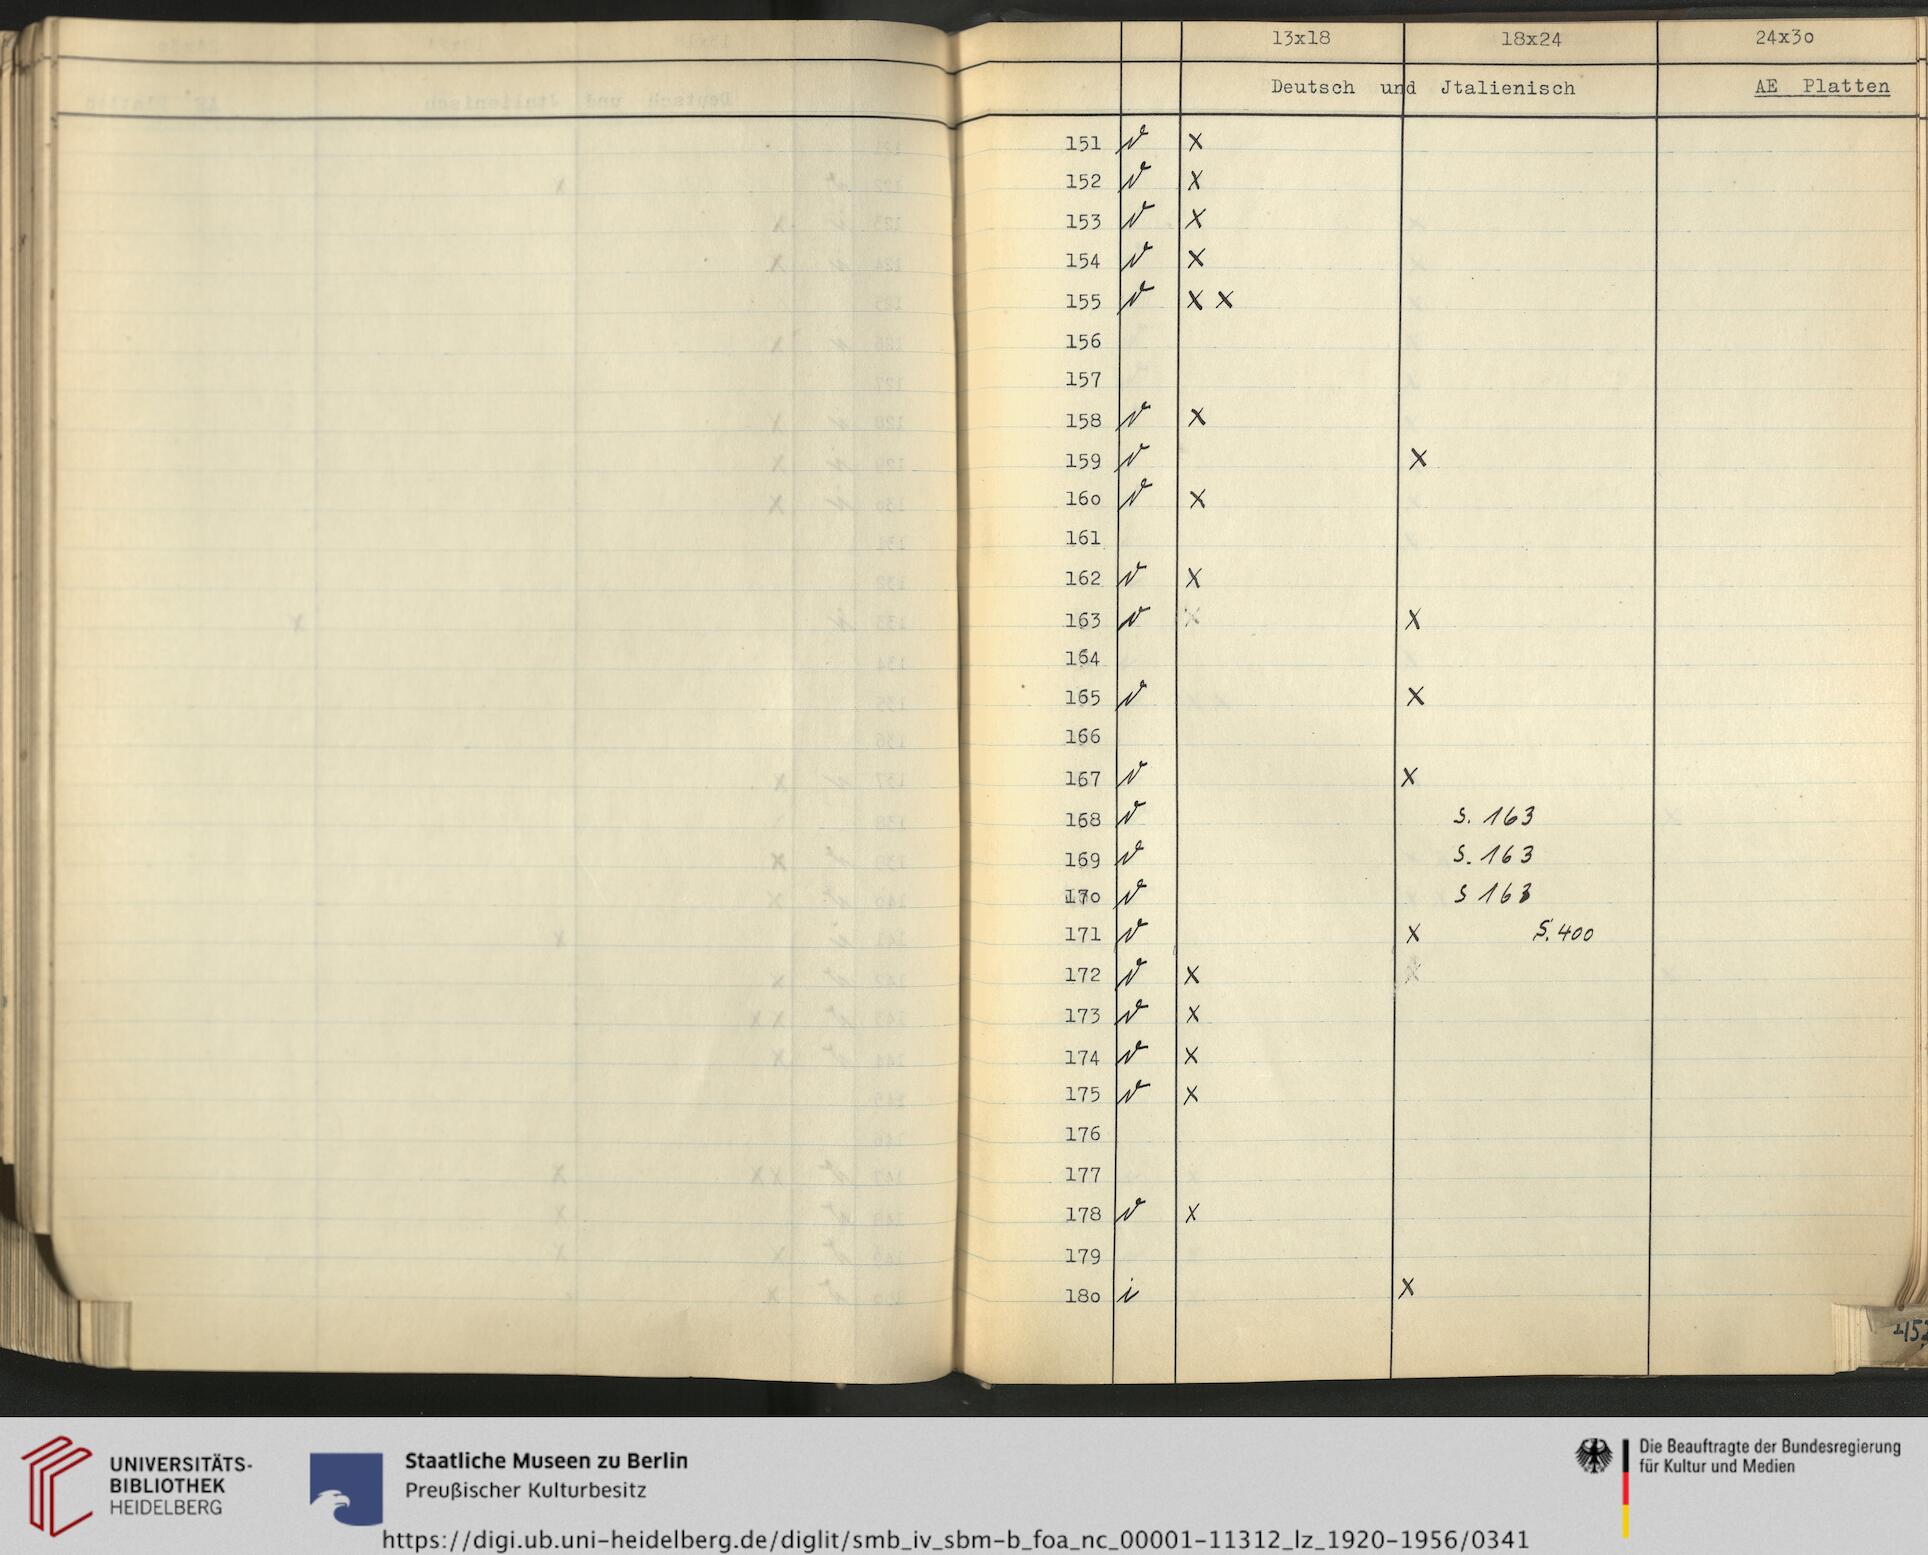 13x18 18x24 24x3o
Deutsch und Jtalienisch AE Platten
151 v x
152 v x
153 v x
154 v x
155 v x x
156
157
158 v x
159 v x
16o v x
161
162 v x
163 v x x
164
165 v x
166
167 v x
168 v S. 163
169 v S. 163
17o v S 163
171 v x S. 400
172 v x x
173 v x
174 v x
175 v x
176
177
178 v x
179
18o i x
UNIVERSITÄTS-
BIBLIOTHEK
HEIDELBERG
Staatliche Museen zu Berlin
Preußischer Kulturbesitz
Die Beauftragte der Bundesregierung
für Kultur und Medien
https://digi.ub.uni-heidelberg.de/diglit/smb_iv_sbm-b_foa_nc_00001-11312_lz_1920-1956/0341